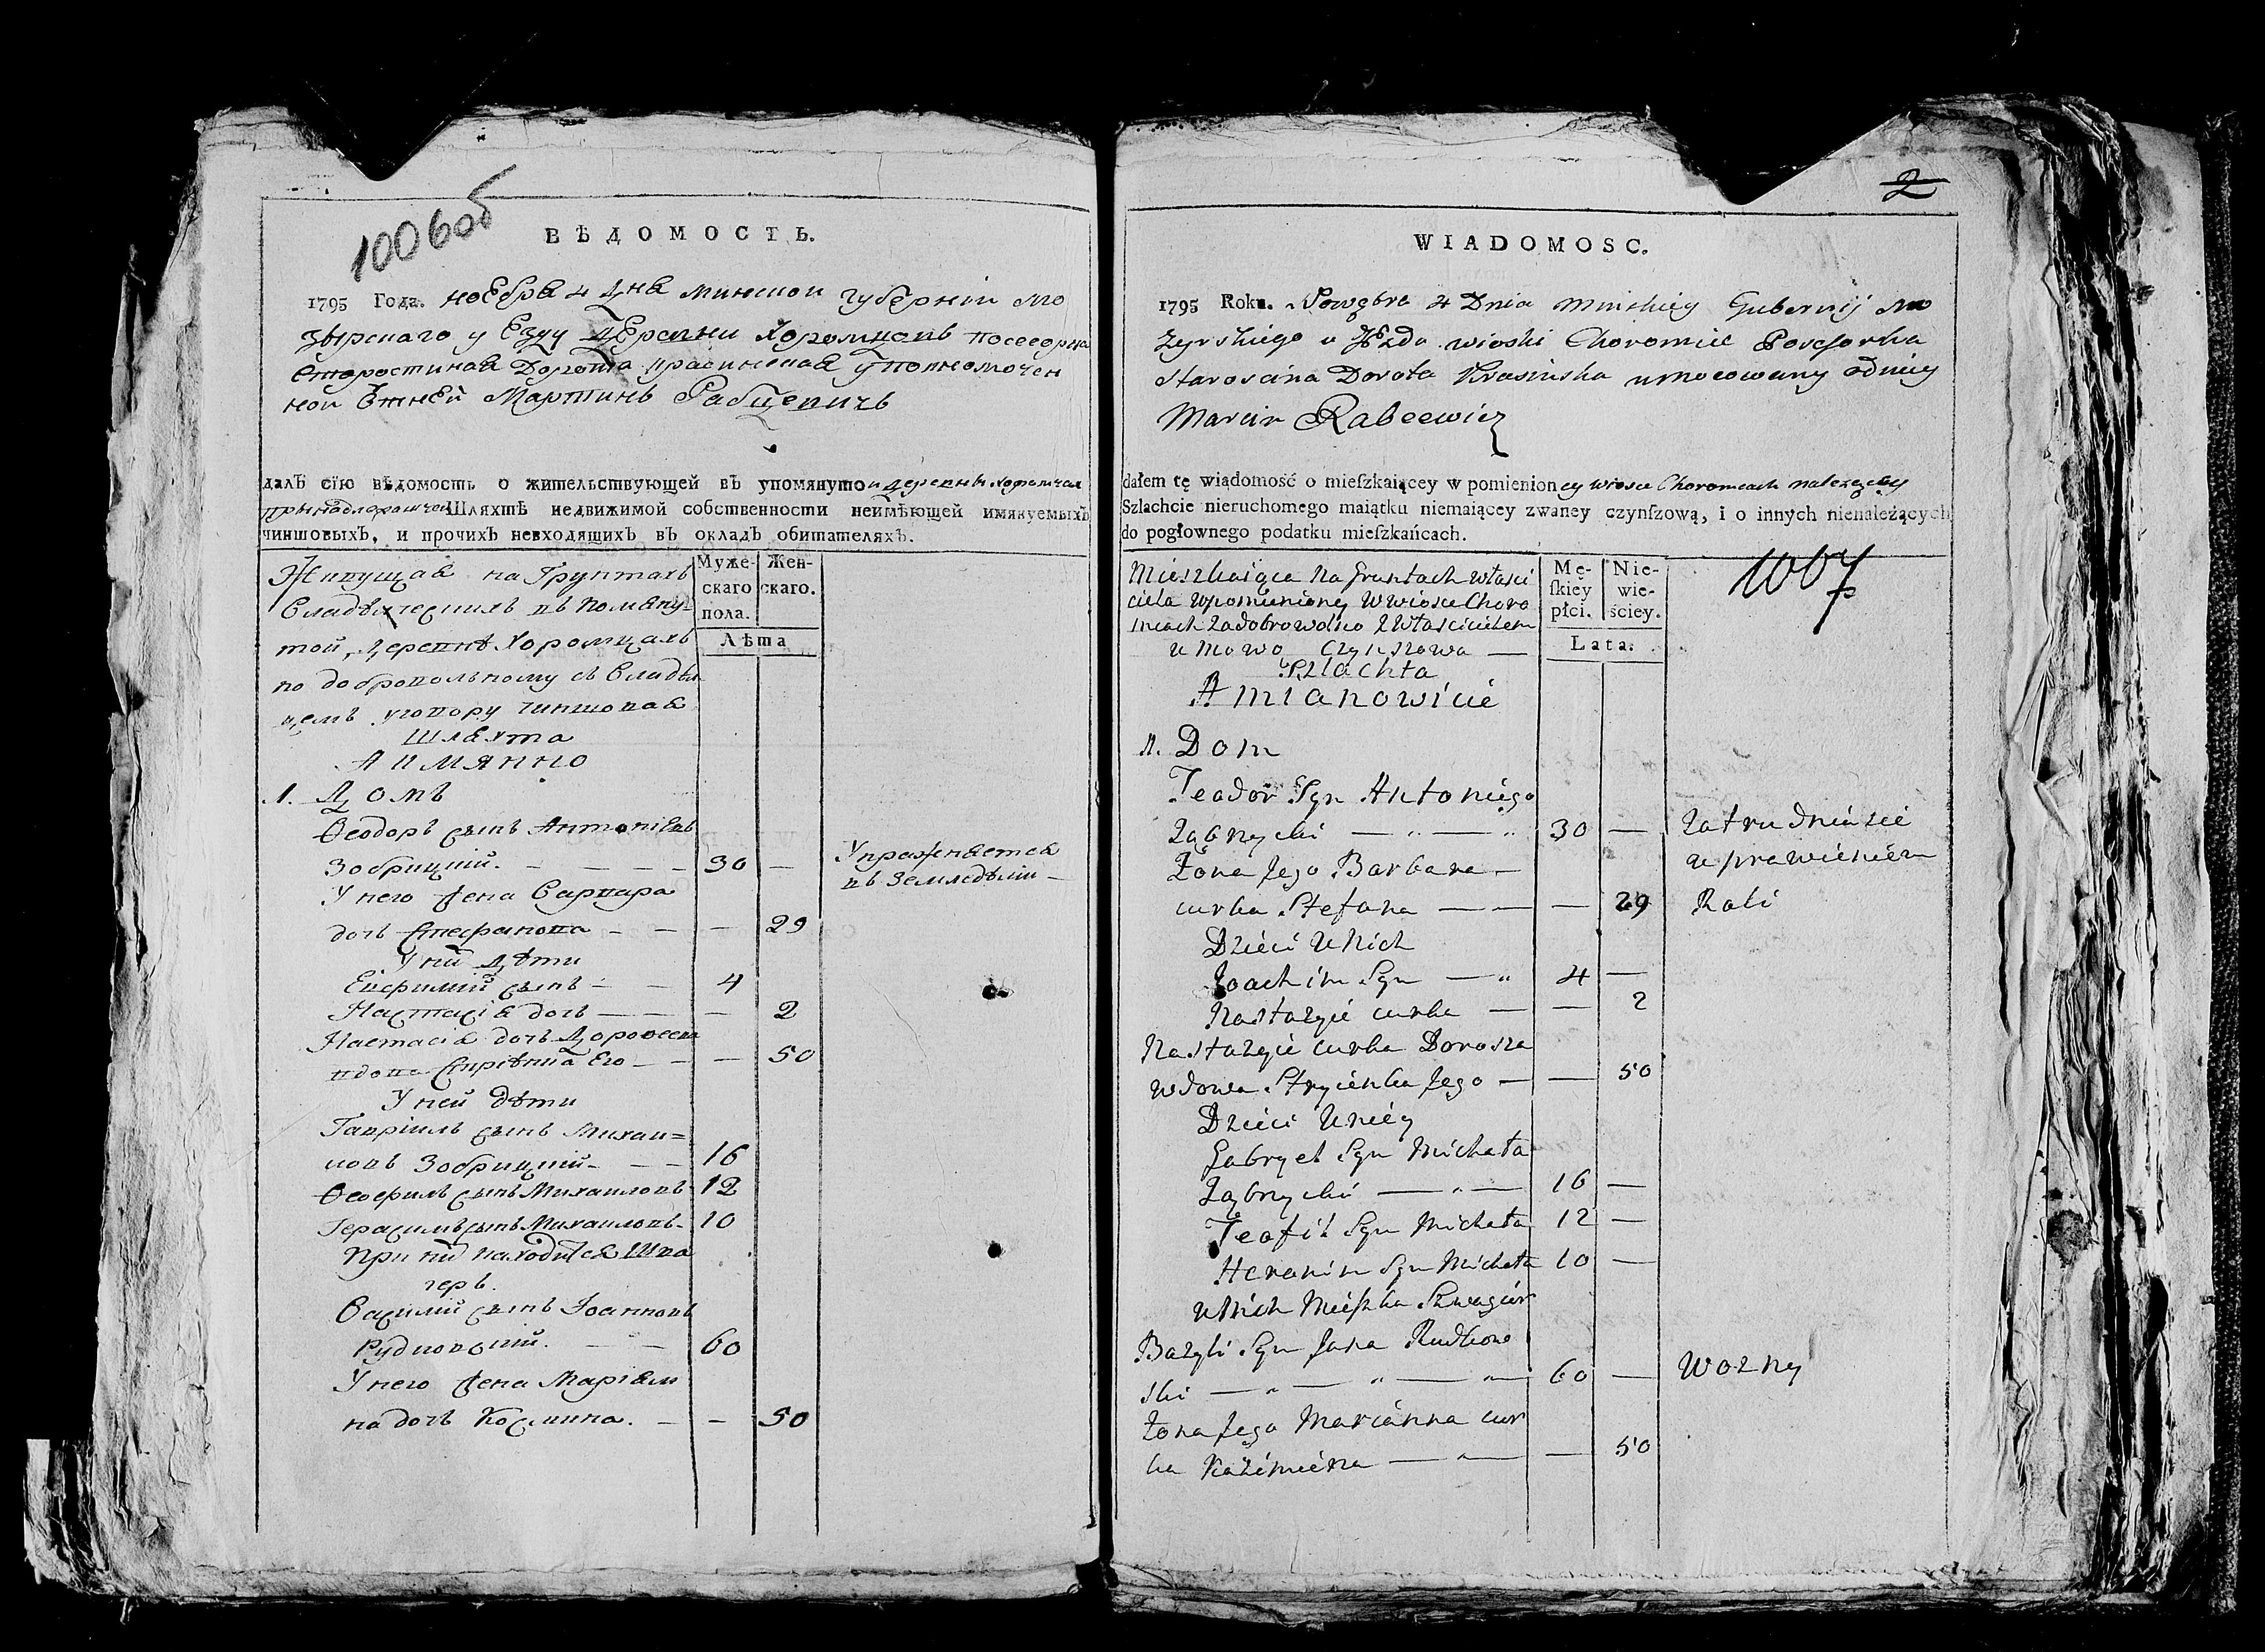 1006об
ВѢДОМОСТЬ.
1795 Года. ноебра 4 дна минской губерніи мо
зырскаго уезду деревни Хоромцовъ посесорка
Старостиная Дорота Красинская уполномочен
ной Ѿ ней Мартинъ Рабцевичъ
далЪ сїю вѣдомость о жительствующей въ упомянутой деревнѣ Хоромцах
принадлежащей Шляхтѣ недвижимой собственности неимѣющей имянуемыхъ
чиншовыхъ, и прочихъ невходящихъ въ окладъ обитателяхъ.
Живущая на Грунтахъ
Владѣлческихъ въ помяну-
той, деревнѣ Хоромцахъ
по добровольному съ Владѣл
цемъ уговору чиншовая
Шляхта
А имянно
Муже-
скаго
пола.
Жен-
скаго.
Лѣта
1. Домъ
Ѳеодоръ сынъ Антоніевъ
Зобрицкій. 30 — Упражняетса
въ Земледѣлии —
У него жена Варвара
дочь Стефанова — 29
У ний дѣти
Евфимий сынъ 4
Настасіа дочь — — 2
Настасіа дочь Дорофеева
вдова Стрієнка Его — — 50
У ней дѣти
Гавріилъ сынъ Михаи=
ловъ Зобрицкий 16
Ѳеофилъ сынъ Михаиловъ 12
Герасимъ сынъ Михаиловъ 10
При ни находитса Шва
геръ.
Василий сынъ Іоанновъ
Рудковский. 60
У него жена Маріан
на дочь Космина. — 50
2
WIADOMOSC.
1795 Roku. Nowębra 4 Dnia Minskiey Gubernij Mo
zyrskiego u Jezdu wioski Choromiec Possesorka
Starościna Dorota Krasinska umocowany odniey
Marcin Rabcewicz
dałem tę wiądomość o mieſzkaiącey w pomienioney wiosce Choromcach należącey
Szlachcie nieruchomego maiątku niemaiącey zwaney czynſzową, i o innych nienależących
do pogłownego podatku mieſzkańcach.
Mieszkaiąca Na gruntach własci
ciela wpomienioney W wiosce Choro
mcach zadobrowolno z Właścicielem
u Mowo Czynszowa —
Szlachta
A mianowicie
Mę-
ſkiey
płci.
Nie-
wie-
ściey.
Lata.
1007
1. Dom
Teodor Syn Antoniego
Ząbrzycki — " — " 30 — Zatrudnia sie
Żona Jego Barbara — uprawieniem
curka Stefana — — — 29 Roli
Dzieci U Nich
Joachim Syn — " 4 —
Nastazyie curka — — 2
Nastazyie curka Dorosza
wdowa Stryienka Jego — — 50
Dzieci Uniey
Gabryel Syn Michała
Ząbrzycki — " — 16 —
Teofil Syn Michała 12 —
Heronim Syn Michała 10 —
uNich Mieſzka Szwagier
Bazyli Syn Jana Rudkow
ski — " — " — " 60 — Wozny
Żona Jego Marianna cur
ka Kazimierza — " — — 50